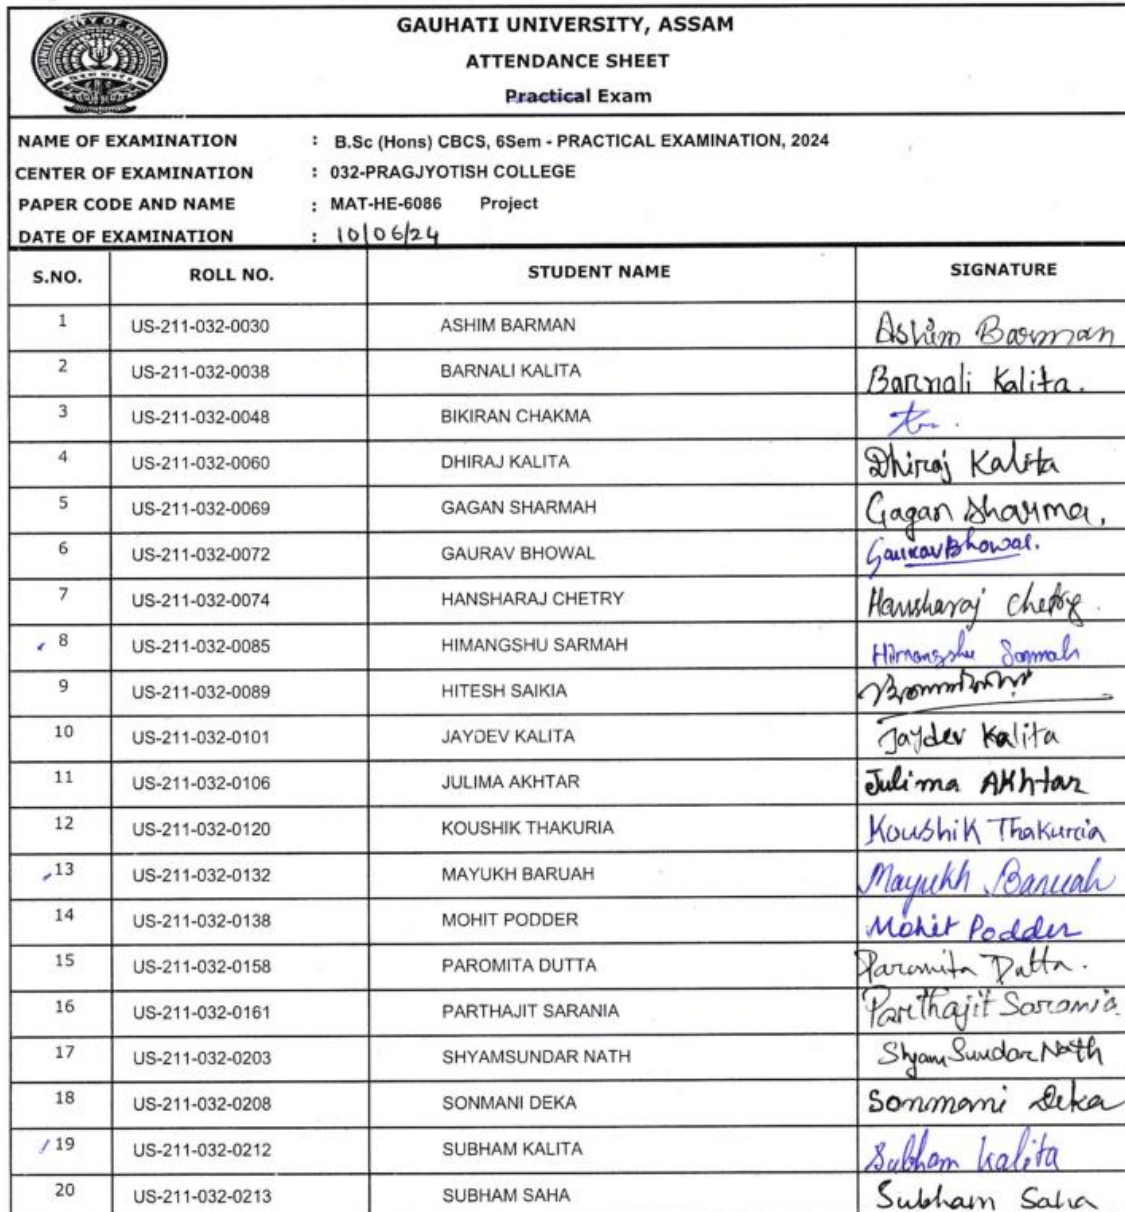 UNIVERSITY OF GAUHATI
GAUHATI UNIVERSITY, ASSAM
ATTENDANCE SHEET
Practical Exam
NAME OF EXAMINATION : B.Sc (Hons) CBCS, 6Sem - PRACTICAL EXAMINATION, 2024
CENTER OF EXAMINATION : 032-PRAGJYOTISH COLLEGE
PAPER CODE AND NAME : MAT-HE-6086 Project
DATE OF EXAMINATION : 10/06/24
S.NO. ROLL NO. STUDENT NAME SIGNATURE
1 US-211-032-0030 ASHIM BARMAN Ashim Barman
2 US-211-032-0038 BARNALI KALITA Barnali Kalita.
3 US-211-032-0048 BIKIRAN CHAKMA
4 US-211-032-0060 DHIRAJ KALITA Dhiraj Kalita
5 US-211-032-0069 GAGAN SHARMAH Gagan Sharma.
6 US-211-032-0072 GAURAV BHOWAL Gaurav Bhowal.
7 US-211-032-0074 HANSHARAJ CHETRY Hansharaj Chetry.
8 US-211-032-0085 HIMANGSHU SARMAH Himangshu Sarmah
9 US-211-032-0089 HITESH SAIKIA
10 US-211-032-0101 JAYDEV KALITA Jaydev Kalita
11 US-211-032-0106 JULIMA AKHTAR Julima AKhtar
12 US-211-032-0120 KOUSHIK THAKURIA Koushik Thakuria
13 US-211-032-0132 MAYUKH BARUAH Mayukh Baruah
14 US-211-032-0138 MOHIT PODDER Mohit Podder
15 US-211-032-0158 PAROMITA DUTTA Paromita Dutta.
16 US-211-032-0161 PARTHAJIT SARANIA Parthajit Sarania
17 US-211-032-0203 SHYAMSUNDAR NATH Shyam Sundar Nath
18 US-211-032-0208 SONMANI DEKA Sonmani Deka
19 US-211-032-0212 SUBHAM KALITA Subham Kalita
20 US-211-032-0213 SUBHAM SAHA Subham Saha